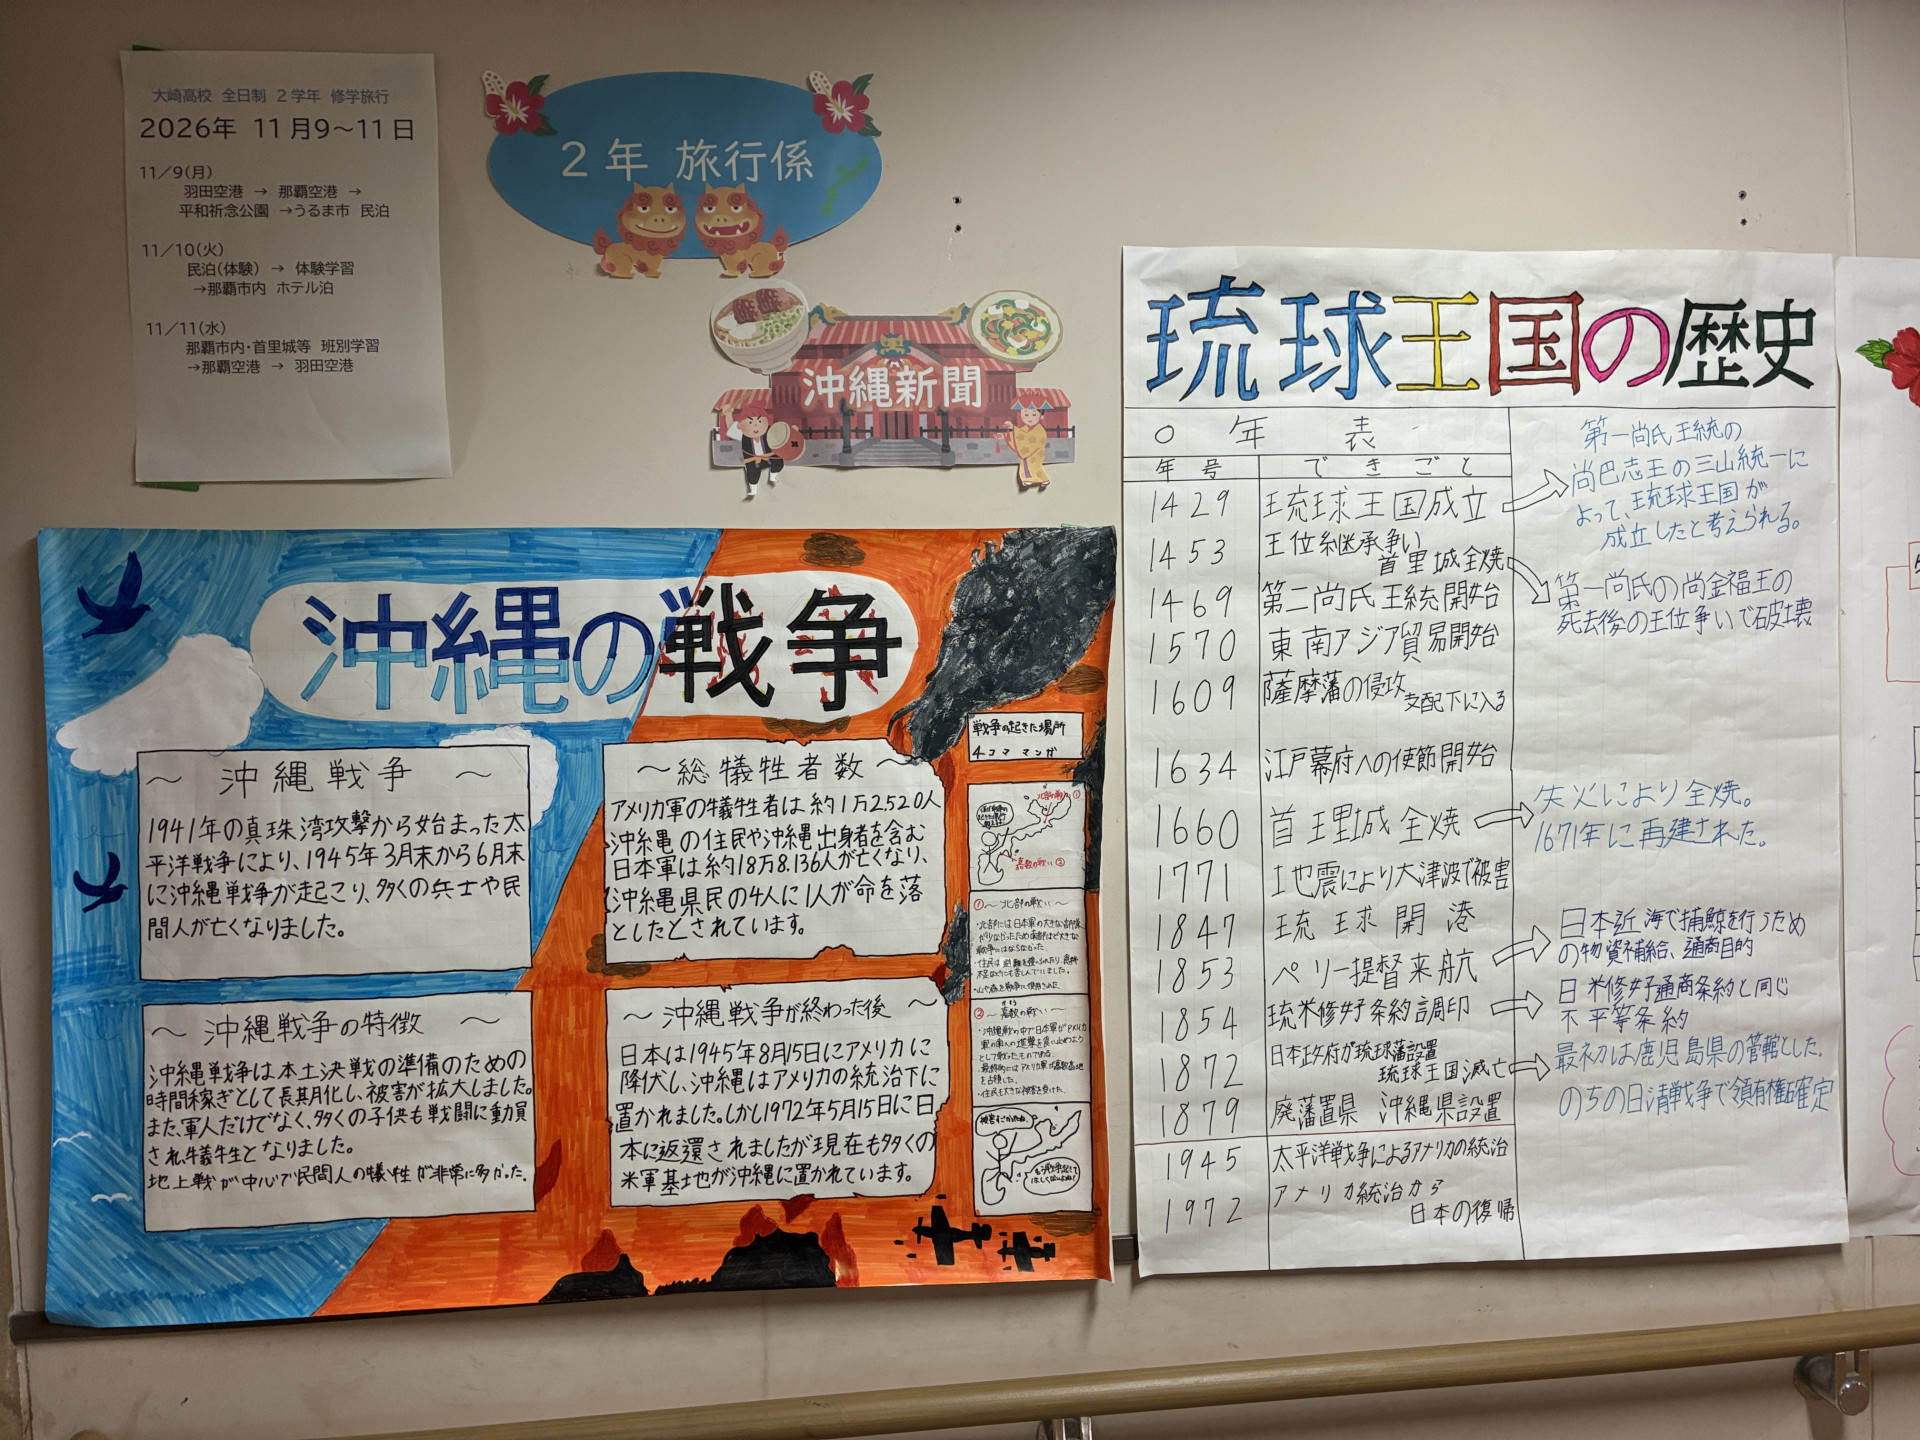 大崎高校 全日制 2学年 修学旅行
2026年 11月9~11日
11/9(月)
羽田空港 → 那覇空港 →
平和祈念公園 →うるま市 民泊
11/10(火)
民泊(体験) → 体験学習
→那覇市内 ホテル泊
11/11(水)
那覇市内・首里城等 班別学習
→那覇空港 → 羽田空港
2年 旅行係
沖縄新聞
沖縄の戦争
~ 沖縄戦争 ~
1941年の真珠湾攻撃から始まった太
平洋戦争により、1945年3月末から6月末
に沖縄戦争が起こり、多くの兵士や民
間人が亡くなりました。
~総犠牲者数~
アメリカ軍の犠牲者は約1万2520人
沖縄の住民や沖縄出身者を含む
日本軍は約18万8.136人が亡くなり、
沖縄県民の4人に1人が命を落
としたとされています。
~ 沖縄戦争の特徴 ~
沖縄戦争は本土決戦の準備のための
時間稼ぎとして長期化し、被害が拡大しました。
また、軍人だけでなく、多くの子供も戦闘に動員
され、犠牲となりました。
地上戦が中心で民間人の犠牲が非常に多かった。
~沖縄戦争が終わった後~
日本は1945年8月15日にアメリカに
降伏し、沖縄はアメリカの統治下に
置かれました。しかし1972年5月15日に日
本に返還されましたが現在も多くの
米軍基地が沖縄に置かれています。
戦争の起きた場所
4コママンガ
北部の戦い①
嘉数の戦い②
①~北部の戦い~
②~嘉数の戦い~
琉球王国の歴史
○年表
年号 できごと
1429 琉球王国成立
第一尚氏王統の
尚巴志王の三山統一に
よって、琉球王国が
成立したと考えられる。
1453 王位継承争い
首里城全焼
第一尚氏の尚金福王の
死去後の王位争いで破壊
1469 第二尚氏王統開始
1570 東南アジア貿易開始
1609 薩摩藩の侵攻 支配下に入る
1634 江戸幕府への使節開始
1660 首里城全焼
失火により全焼。
1671年に再建された。
1771 地震により大津波で被害
1847 琉球開港
1853 ペリー提督来航
日本近海で捕鯨を行うため
の物資補給、通商目的
1854 琉米修好条約調印
日米修好通商条約と同じ
不平等条約
1872 日本政府が琉球藩設置
琉球王国滅亡
最初は鹿児島県の管轄とした。
のちの日清戦争で領有権確定
1879 廃藩置県 沖縄県設置
1945 太平洋戦争によるアメリカの統治
1972 アメリカ統治から
日本の復帰